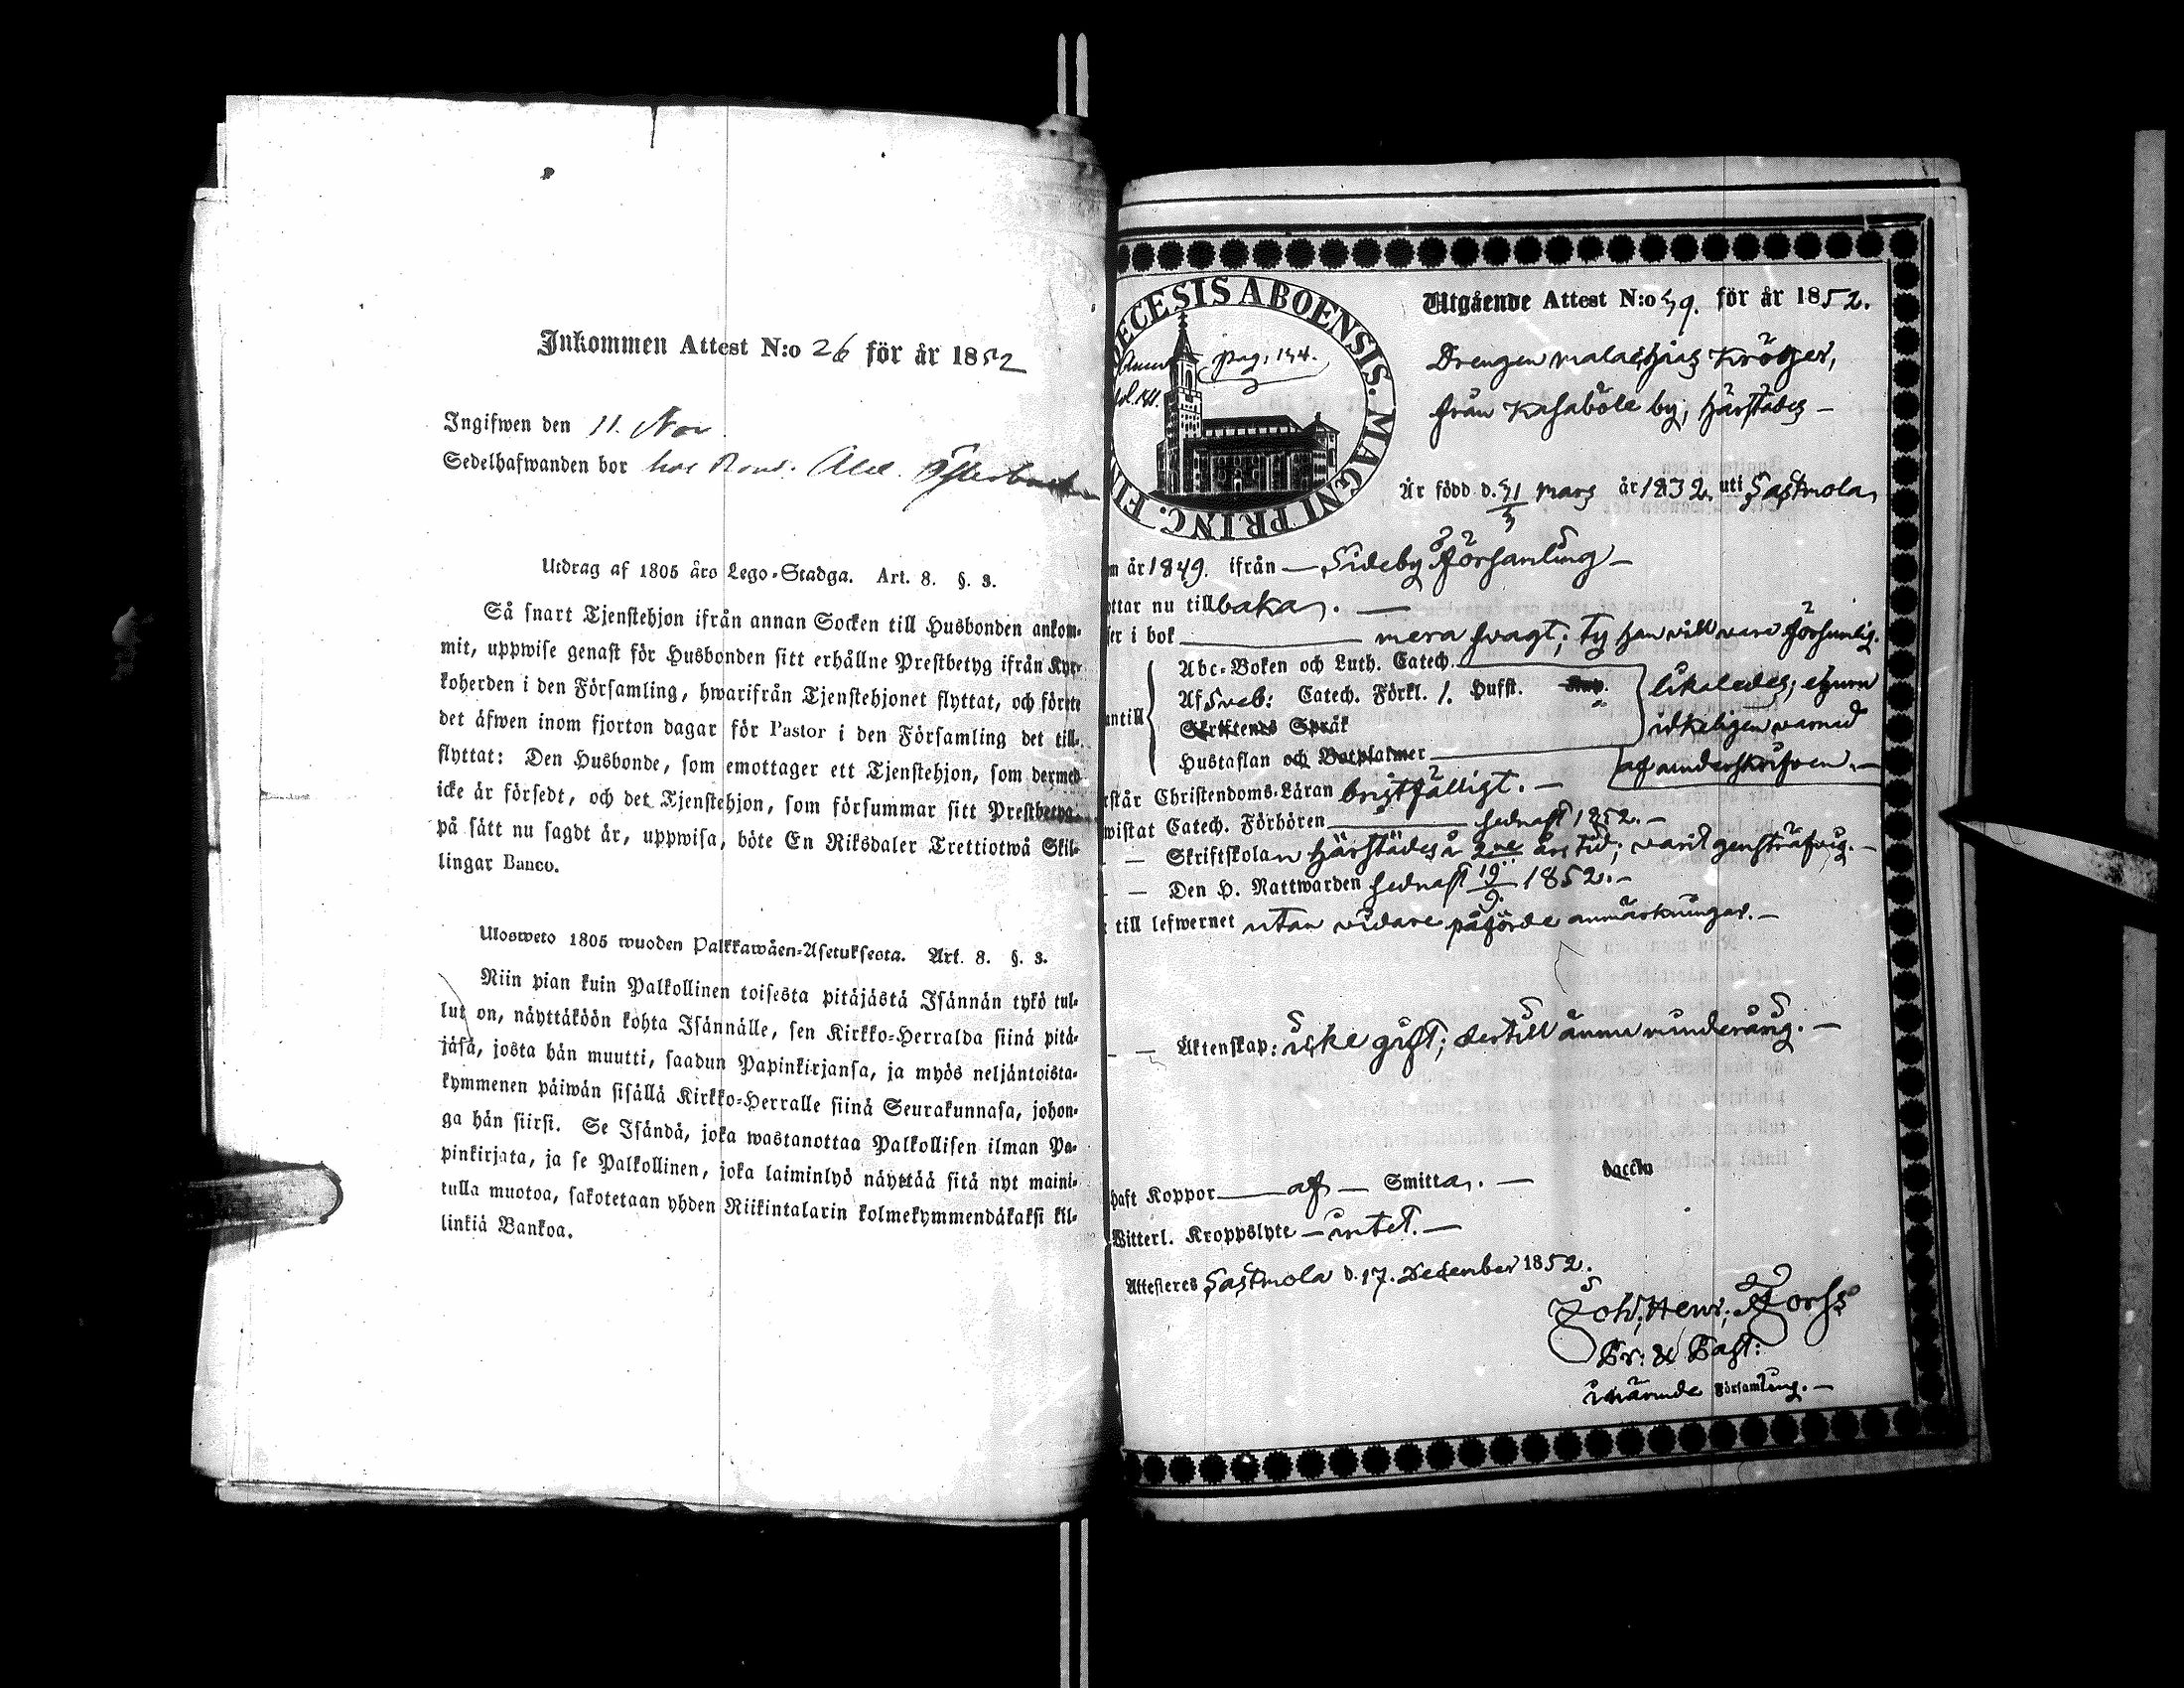 Inkommen Attest N:o 26 för år 1852
Ingifwen den 11. Nov
Sedelhafwanden bor hos Abel.
Utdrag af 1805 års Lego-Stadga. Art. 8. §. 3.
Så snart Tjenstehjon ifrån annan Socken till Husbonden ankom-
mit, uppwise genast för Husbonden sitt erhållne Prestbetyg ifrån Kyr-
koherden i den Församling, hwarifrån Tjenstehjonet flyttat, och förete
det äfwen inom fjorton dagar för Pastor i den Församling det till-
flyttat: Den Husbonde, som emottager ett Tjenstehjon, som dermed
icke är försedt, och det Tjenstehjon, som försummar sitt Prestbetyg
på sätt nu sagdt är, uppwisa, böte En Riksdaler Trettiotwå Skil-
lingar Banco.
Ulosweto 1805 wuoden Palkkawäen-Asetuksesta. Art. 8. §. 3.
Niin pian kuin Palkollinen toisesta pitäjästä Isännän tykö tul-
lut on, näyttäköön kohta Isännälle, sen Kirkko-Herralda siinä pitä-
jäsä, josta hän muutti, saadun Papinkirjansa, ja myös neljäntoista-
kymmenen päiwän sisällä Kirkko-Herralle siinä Seurakunnasa, johon-
ga hän siirsi. Se Isändä, joka wastanottaa Palkollisen ilman Pa-
pinkirjata, ja se Palkollinen, joka laiminlyö näyttää sitä nyt maini-
tulla muotoa, sakotetaan yhden Riikintalarin kolmekymmendäkaksi kil-
linkiä Bankoa.
DIOECESIS ABOENSIS. MAGNI PRINC. FIN
pag. 154.
Utgående Attest N:o 59. för år 1852.
Drengen Malachias Kröger,
från Kasaböle by, härstädes –
Är född d. 31/3 Mars år 1832. uti Sastmola,
m år 1849. ifrån – Sideby Församling –
ttar nu till baka. –
ser i bok – mera svagt; ty han vill vara försumlig.
Abc-Boken och Luth. Catech.
Af Sveb: Catech. Förkl. 1. Hufst.
Skriftenes Språk
Hustaflan och Botpsalmer
antill
likaledes, ehuru
idkeligen varnad
af underskrifven. –
rstår Christendoms-Läran bristfälligt. –
wistat Catech. Förhören – sednast 1852. –
– Skriftskolan härstädes å 2ne års tid; varit gensträfvig. –
– Den H. Nattwarden sednast 19/9. 1852. –
till lefwernet utan vidare påförde anmärkningar. –
– Äktenskap: icke gift; dertill ännu minderårig. –
haft Koppor – af – Smitta. – vaccin
Witterl. Kroppslyte – intet. –
Attesteres Sastmola d. 17. December 1852.
Joh. Henr. Forss
Pr: & Past:
i närnde Församling. –